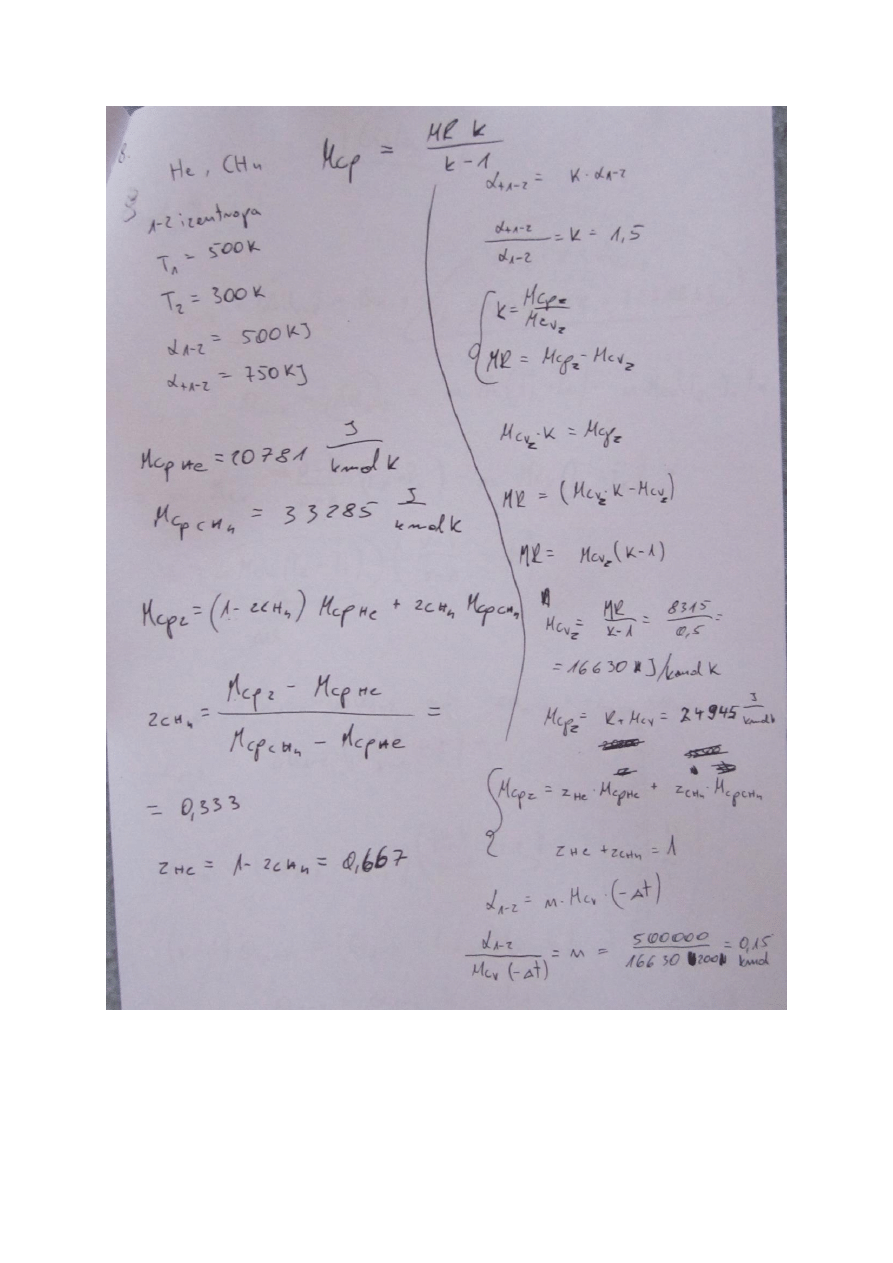 8.
He, CH₄
Mcp = MR k / k-1
1-2 izentropa
T₁ = 500K
T₂ = 300K
L₁₋₂ = 500KJ
Lₜ₁₋₂ = 750KJ
McpHe = 20781 J / kmol K
McpCH₄ = 33285 J / kmol K
Mcpz = (1- zCH₄) McpHe + zCH₄ McpCH₄
zCH₄ = Mcpz - McpHe / McpCH₄ - McpHe =
= 0,333
zHe = 1- zCH₄ = 0,667
Lₜ₁₋₂ = K · L₁₋₂
Lₜ₁₋₂ / L₁₋₂ = K = 1,5
K = Mcpz / Mcvz
MR = Mcpz - Mcvz
Mcvz · K = Mcpz
MR = (Mcvz · K - Mcvz)
MR = Mcvz (K-1)
Mcvz = MR / K-1 = 8315 / 0,5 =
= 16630 J/kmol K
Mcpz = R + Mcv = 24945 J / kmolk
Mcpz = zHe · McpHe + zCH₄ · McpCH₄
zHe + zCH₄ = 1
L₁₋₂ = n · Mcv · (-Δt)
L₁₋₂ / Mcv (-Δt) = n = 500000 / 16630 200 = 0,15 kmol